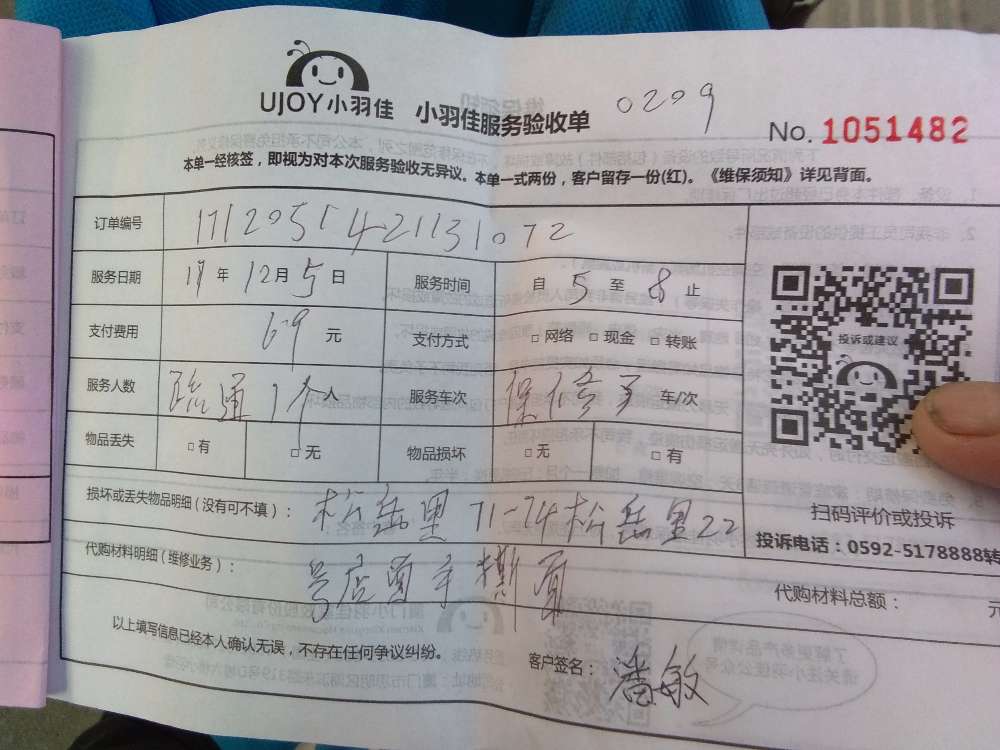 UJOY小羽佳 小羽佳服务验收单 0209
No. 1051482
本单一经核签，即视为对本次服务验收无异议。本单一式两份，客户留存一份(红)。《维保须知》详见背面。
订单编号 1712051421131072
服务日期 17 年 12 月 5 日 服务时间 自 5 至 8 止
支付费用 69 元 支付方式 □ 网络 □ 现金 □ 转账
服务人数 疏通 1个 人 服务车次 保修 车/次
物品丢失 □ 有 □ 无 物品损坏 □ 无 □ 有
损坏或丢失物品明细（没有可不填）： 松岳里 71-74 松岳里 22
代购材料明细（维修业务）： 号店面
代购材料总额： 元
投诉或建议
扫码评价或投诉
投诉电话：0592-5178888转
以上填写信息已经本人确认无误，不存在任何争议纠纷。
客户签名： 潘敏